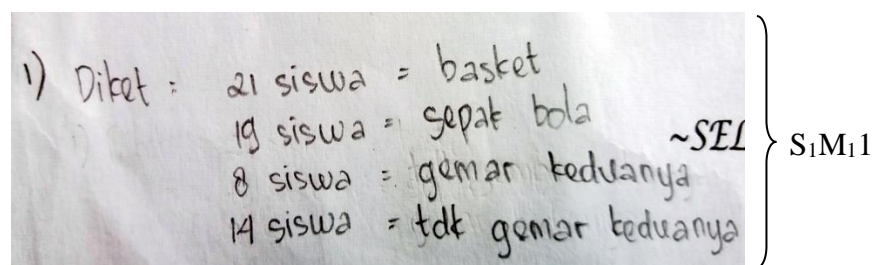 1) Diket : 21 siswa = basket
19 siswa = sepak bola
~SEL
8 siswa = gemar keduanya
14 siswa = tdk gemar keduanya
S₁M₁1